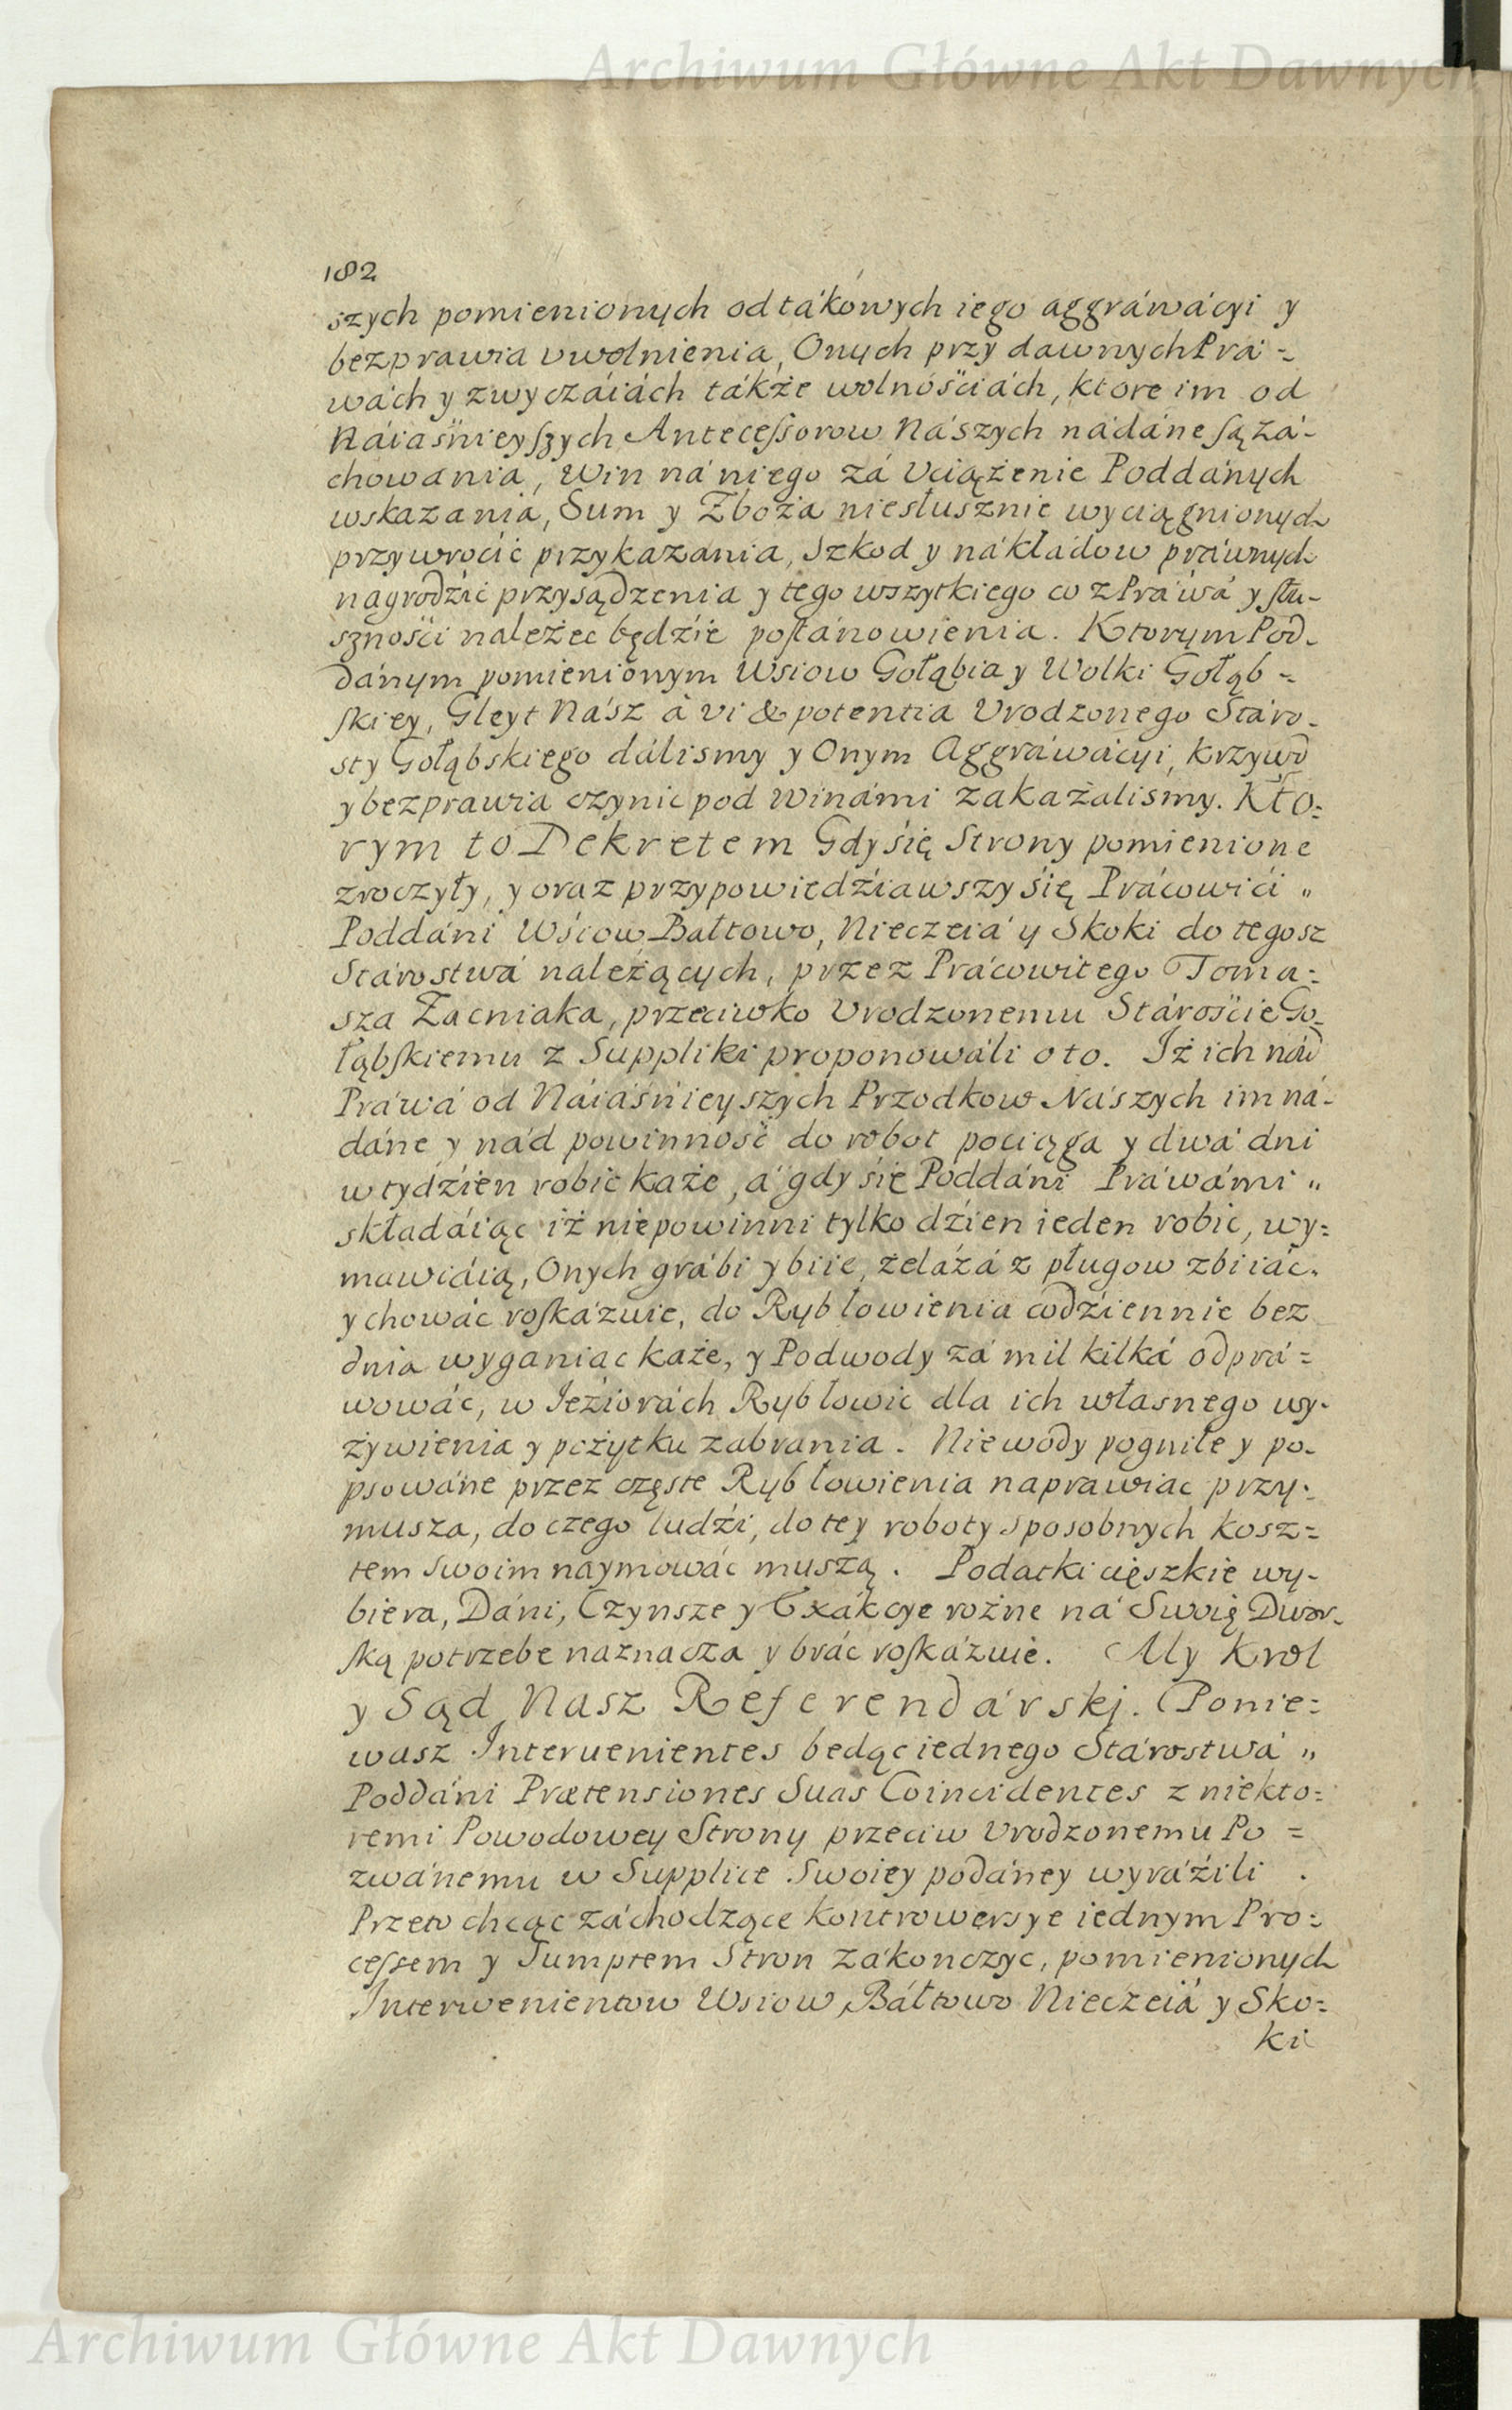 Archiwum Główne Akt Dawnych
182
szych pomienionych od tákowych iego aggráwácyi y
bezprawia vwolnienia, Onych przy dawnych Prá=
wách y zwyczáiách tákże wolnościách, ktore im od
Náiaśnieyszych Antecessorow Nászych nádáne są zá-
chowania, Win ná niego zá Vciążenie Poddánych
wskazania, Sum y Zboża niesłusznie wyciągnionych
przywrocić przykazania, Szkod y nákładow práwnych
nagrodźić przysądzenia y tego wszytkiego co z Práwá y słu-
szności należec będźie postánowienia. Ktorym Pod-
dánym pomienionym Wsiow Gołąbia y Wolki Gołąb=
skiey, Gleyt Nász à vi & potentia Vrodzonego Stáro-
sty Gołąbskiego dálismy y Onym Aggráwácyi, krzywd
y bezprawia czynic pod winámi zakazalismy. Kto=
rym to Dekretem Gdy śię Strony pomienione
zroczyły, y oraz przypowiedźiawszy śię Prácowići "
Poddáni Wśiow Bałtowo, Nieczeiá y Skoki do tegosz
Stárostwá należących, przez Prácowitego Toma=
sza Zacniaka, przeciwko Vrodzonemu Stárośćie Go-
łąbskiemu z Suppliki proponowáli o to. Iż ich nád
Práwá od Náiáśnieyszych Przodkow Nászych im ná-
dáne y nád powinność do robot pociąga y dwá dni
w tydźień robić każe, á gdy śię Poddáni Práwámi "
składáiąc iż niepowinni tylko dźien ieden robic, wy=
mawiáią, Onych grábi y biie, żelázá z pługow zbiiác
y chowác roskázuie, do Ryb łowienia codźiennie bez
dnia wyganiac każe, y Podwody zá mil kilká odprá=
wowác, w Ieźiorách Ryb łowic dla ich własnego wy-
żywienia y pożytku zabrania. Niewody pogniłe y po-
psowáne przez częste Ryb łowienia naprawiac przy-
musza, do czego ludźi, do tey roboty sposobnych kosz=
tem swoim naymowác muszą. Podatki cięszkie wy-
biera, Dáni, Czynsze y Exákcye rożne ná Swoię Dwor-
ską potrzebe naznacza y brác roskázuie. My Krol
y Sąd Nasz Referendárski. Ponie=
wasz Interuenientes będąc iednego Stárostwá "
Poddáni Prætensiones Suas Coincidentes z niekto=
remi Powodowey Strony przeciw Vrodzonemu Po=
zwánemu w Supplice Swoiey podáney wyráźili .
Przeto chcąc záchodzące kontrowersye iednym Pro=
cessem y Sumptem Stron zákonczyc, pomienionych
Interwenientow Wsiow Báłtowo Nieczeiá y Sko=
ki
Archiwum Główne Akt Dawnych